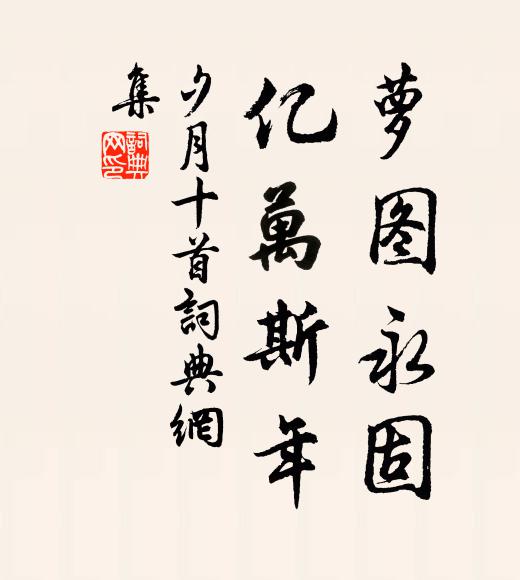 萝图永固
亿萬斯年
夕月十首詞典網
集
詞典網印